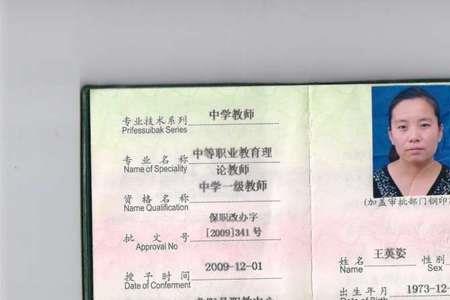 专业技术系列 中学教师
Prifessuibak Series
专业名称 中等职业教育理
Name of Speciality 论教师
资格名称 中学一级教师
Name Qualification
保职改办字
批文号 [2009]341号
Approval No
授予时间 2009-12-01
Date of Conferment
(加盖审批部门钢印
姓名 王英姿 性别
Name Sex
出生年月 1973-12-